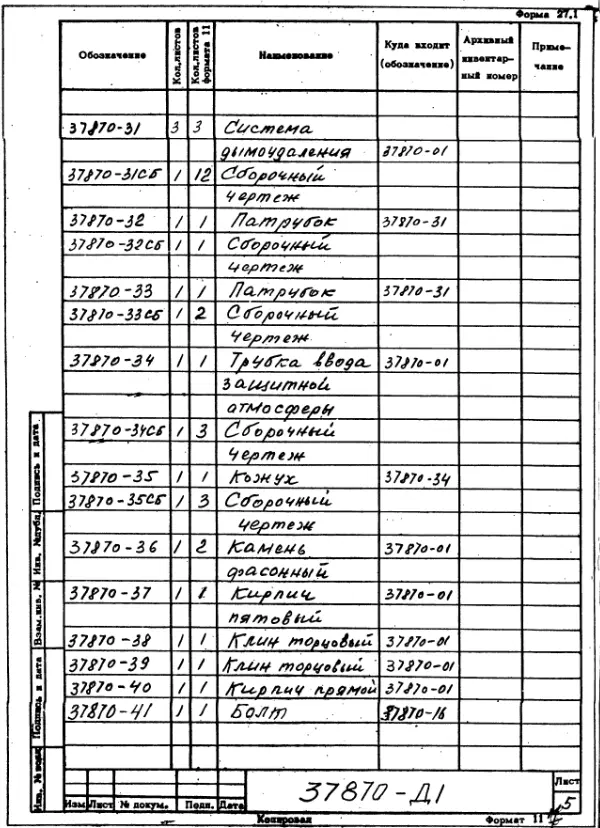 Форма 27.1
Обозначение Кол.листов Кол.листов формата 11 Наименование Куда входит (обозначение) Архивный инвентарный номер Приме-чание
37870-31 3 3 Система
дымоудаления 37870-01
37870-31СБ 1 12 Сборочный
чертеж
37870-32 1 1 Патрубок 37870-31
37870-32СБ 1 1 Сборочный
чертеж
37870-33 1 1 Патрубок 37870-31
37870-33СБ 1 2 Сборочный
чертеж
37870-34 1 1 Трубка ввода 37870-01
защитной
атмосферы
37870-34СБ 1 3 Сборочный
чертеж
37870-35 1 1 Кожух 37870-34
37870-35СБ 1 3 Сборочный
чертеж
37870-36 1 2 Камень 37870-01
фасонный
37870-37 1 1 Кирпич 37870-01
пятовый
37870-38 1 1 Клин торцовый 37870-01
37870-39 1 1 Клин торцовый 37870-01
37870-40 1 1 Кирпич прямой 37870-01
37870-41 1 1 Болт 37870-16
Подпись и дата
Инв. №дубл.
Взам.инв. №
Подпись и дата
Инв. № подл.
Изм. Лист № докум. Подп. Дата
37870-Д1
Лист
5
Копировал Формат 11